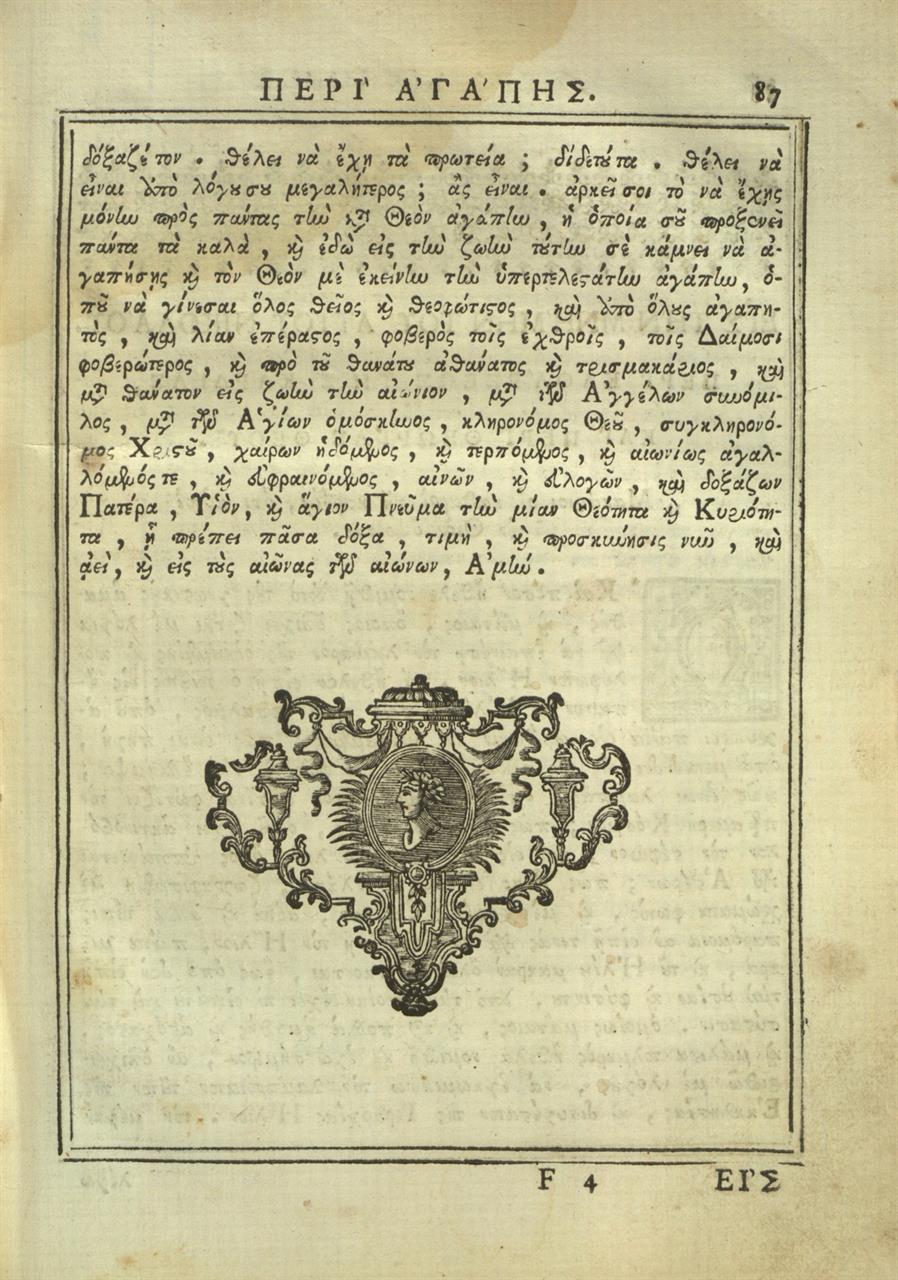 ΠΕΡΙ' Α'ΓΑ'ΠΗΣ. 87
δόξαζέ τον . θέλει νὰ ἔχῃ τὰ πρωτεία ; δίδετȣ́τα . θέλει νὰ
εἶναι ὑπὸ λόγȣσȣ μεγαλήτερος ; ἂς εἶναι . ἀρκεῖσοι τὸ νὰ ἔχῃς
μόνην πρὸς παύτας τὴν κατὰ Θεὸν ἀγάπην , ἡ ὁποία σοῦ προξενεῖ
παύτα τὰ καλὰ , καὶ ἐδὼ εἰς τὴν ζωὴν τȣ́την σὲ κάμνει νὰ ἀ-
γαπήσῃς καὶ τὸν Θεὸν μὲ ἐκείνην τὴν ὑπερτελεστάτην ἀγάπην, ὁ-
ποῦ νὰ γίνεσαι ὅλος θεῖος καὶ θεοφώτιστος , καὶ ὑπὸ ὅλȣς ἀγαπη-
τὸς , καὶ λίαν ἐπέραστος , φοβερὸς τοῖς ἐχθροῖς , τοῖς Δαίμοσι
φοβερώτερος , καὶ πρὸ τȣ͂ θανάτȣ ἀθάνατος καὶ τρισμακάριος , καὶ
μετὰ θάνατον εἰς ζωὴν τὴν αἰώνιον , μετὰ τῶν Α'γγέλων συνόμι-
λος , μετὰ τῶν Α'γίων ὁμόσκηνος , κληρονόμος Θεοῦ , συγκληρονό-
μος Χριστοῦ , χαίρων ἡδόμενος , καὶ τερπόμενος , καὶ αἰωνίως ἀγαλ-
λόμενός τε , καὶ εὐφραινόμενος , αἰνῶν , καὶ εὐλογῶν , καὶ δοξάζων
Πατέρα , Υἱὸν, καὶ ἅγιον Πνεῦμα τὴν μίαν Θεότητα καὶ Κυριότη-
τα , ᾗ πρέπει πᾶσα δόξα , τιμὴ , καὶ προσκύνησις νυῦ , καὶ
ἀεὶ , καὶ εἰς τȣ̀ς αἰῶνας τῶν αἰώνων, Α'μήν .
F 4 ΕΙ'Σ